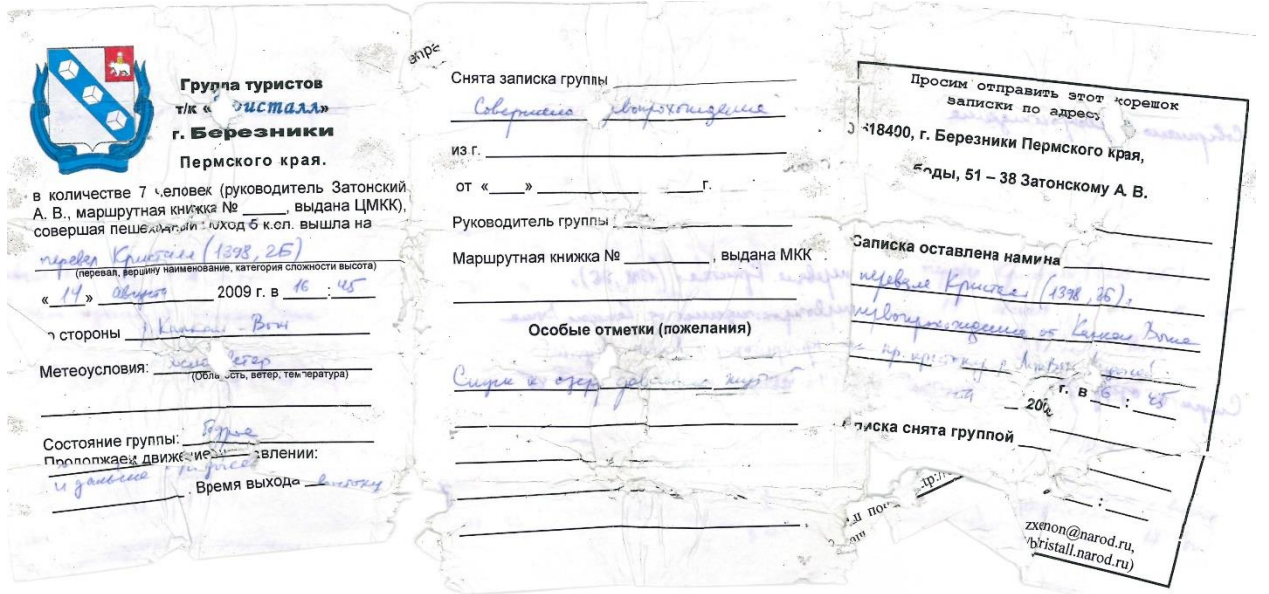 Группа туристов
т/к «Кристалл»
г. Березники
Пермского края.
в количестве 7 человек (руководитель Затонский
А. В., маршрутная книжка № _____, выдана ЦМКК),
совершая пешеходный поход 5 к.сл. вышла на
перевал Кристалл (1398, 2Б)
(перевал, вершину наименование, категория сложности высота)
«14» августа 2009 г. в 16:45
со стороны р. Капкан-Вож
Метеоусловия: ясно, ветер
(Область, ветер, температура)
Состояние группы: бодрое
Продолжаем движение в направлении:
и дальше
Время выхода
Снята записка группы
Совершено первопрохождение
из г.
от «____» ____г.
Руководитель группы
Маршрутная книжка № ____, выдана МКК
Особые отметки (пожелания)
Спуск к озеру довольно
Просим отправить этот корешок
записки по адресу
618400, г. Березники Пермского края,
боды, 51 – 38 Затонскому А. В.
Записка оставлена на
перевале Кристалл (1398, 2Б),
первопрохождение от
г. в 16:45
200
писка снята группой
zxenon@narod.ru,
ristall.narod.ru)